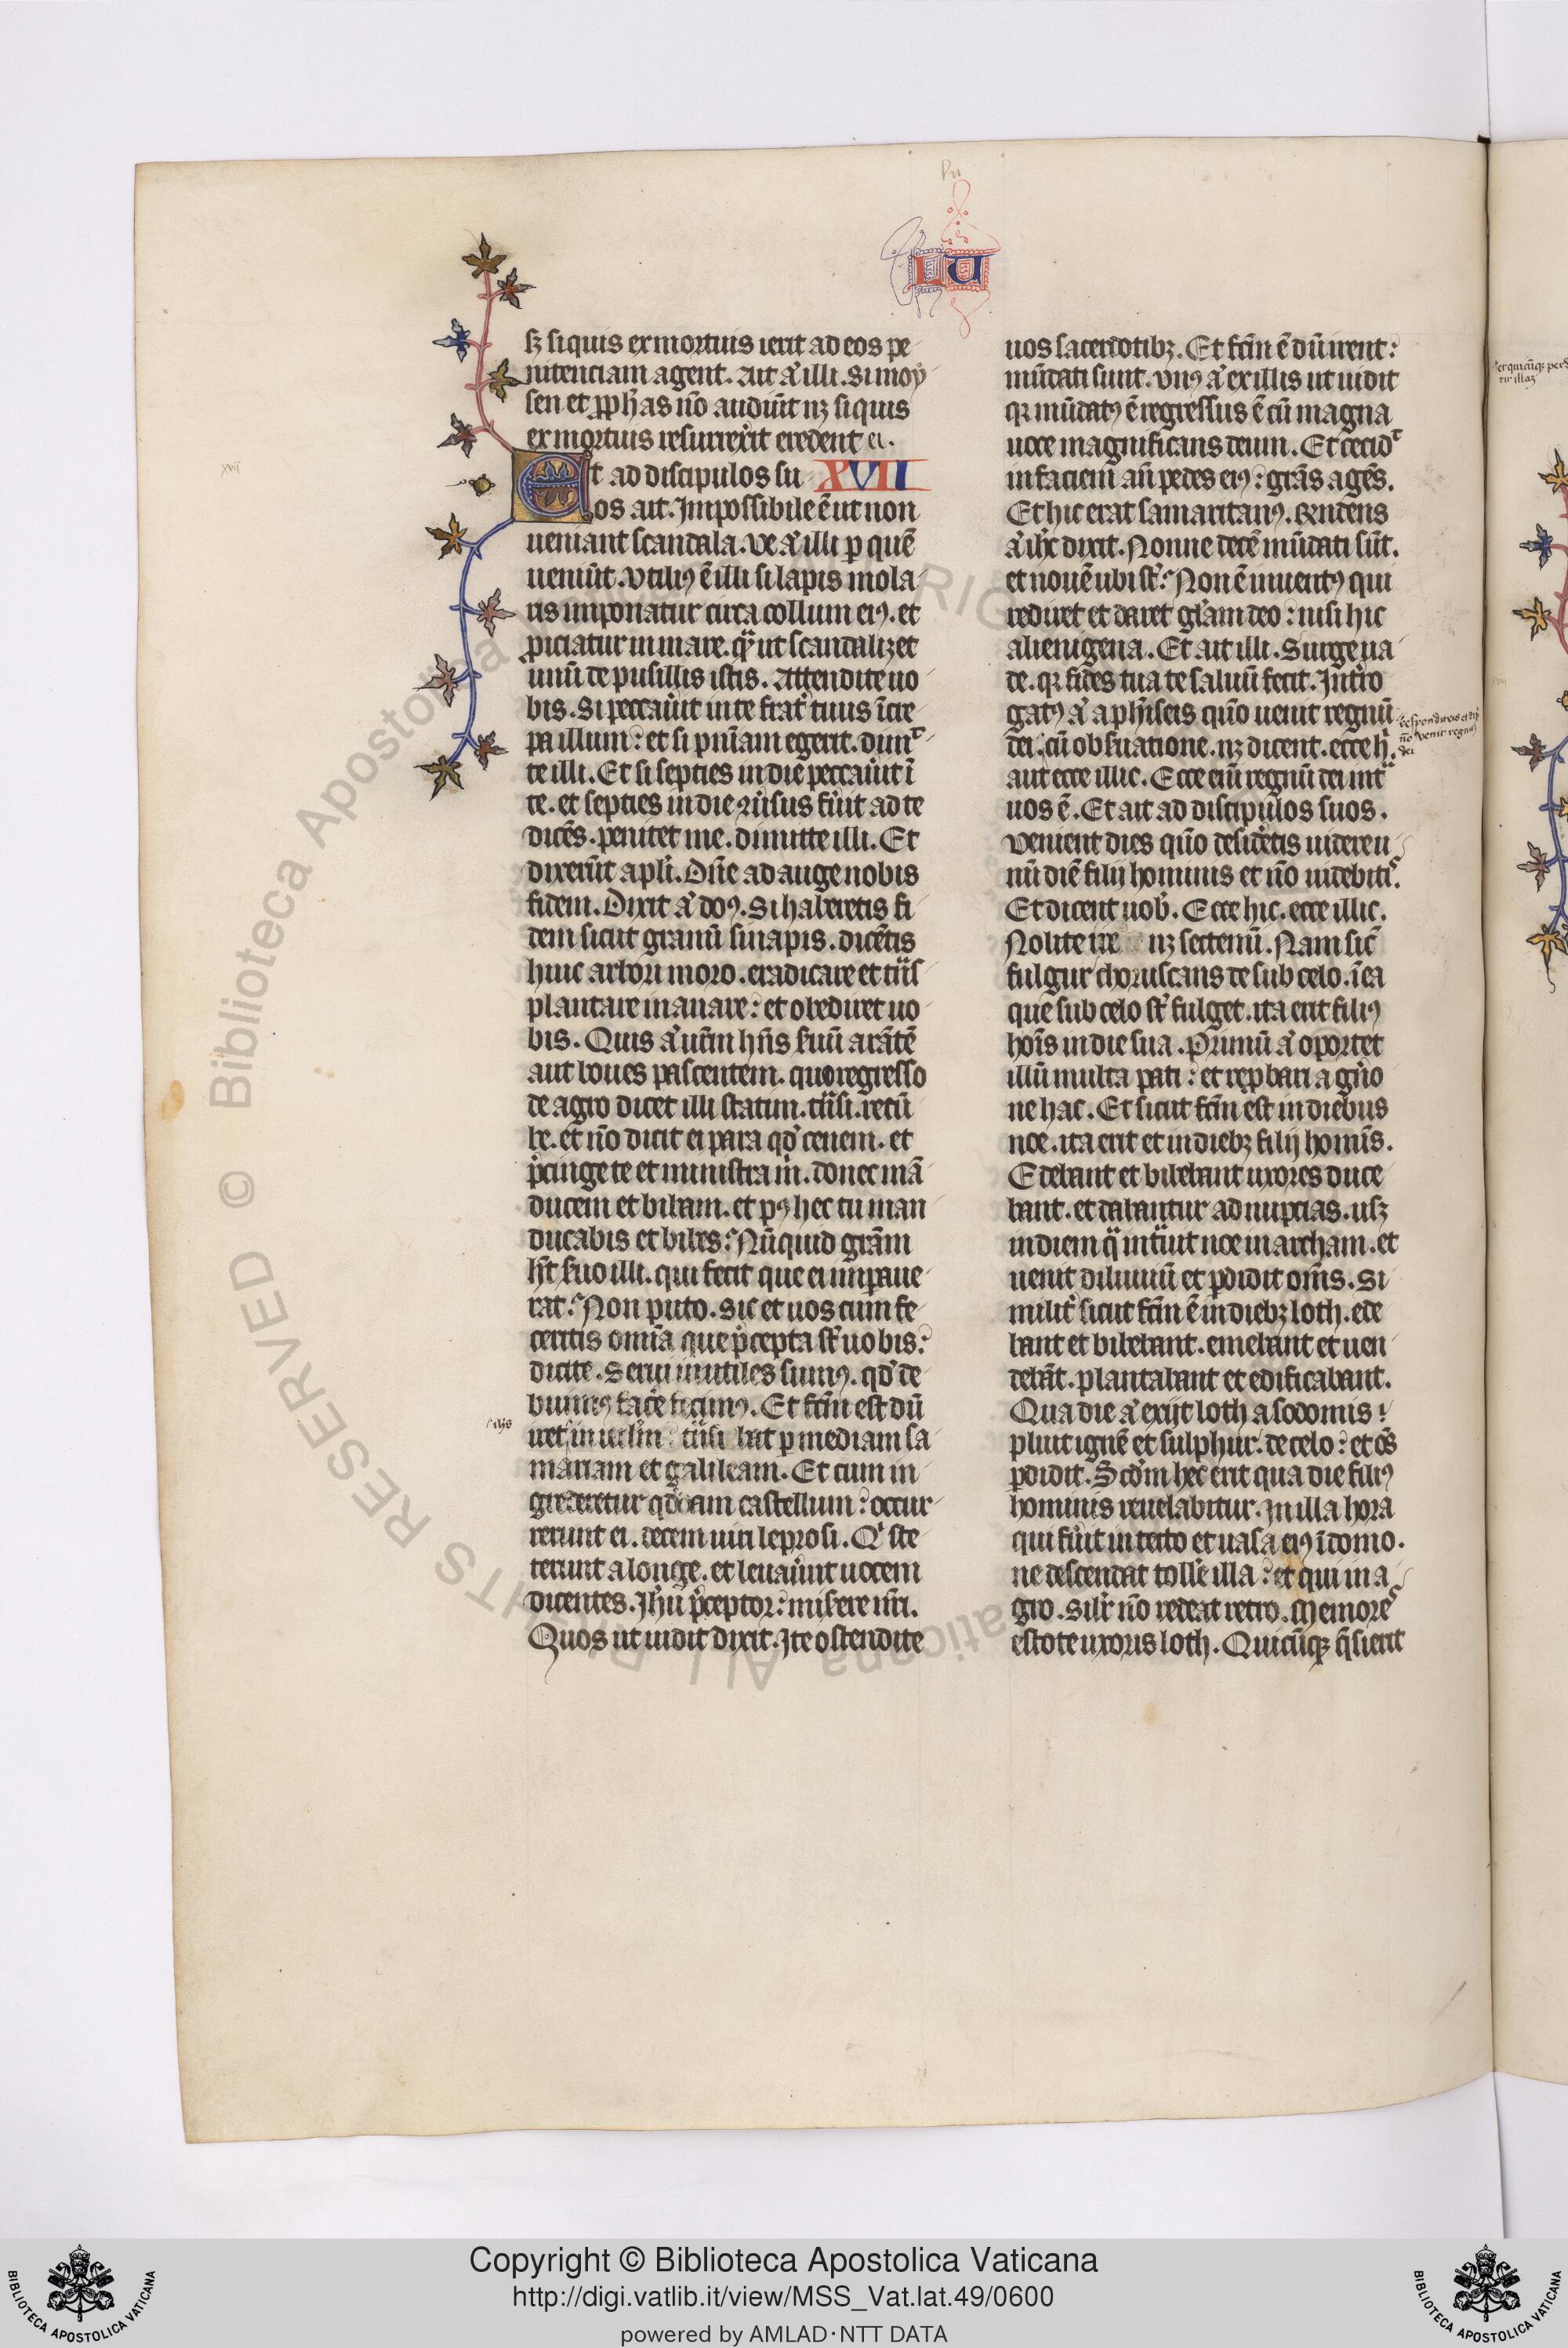 LU
sꝫ si quis ex mortuis ierit ad eos pe
nitenciam agent. Ait aͥ illi. Si moy
sen et ꝓphās nō audiūt nꝫ si quis
ex mortuis resurrexͥit credent ei.
Et ad discipulos su XVII
os ait. Impossibile ē ut non
ueniant scandala. Ve aͥ illi ꝑ quē
ueniūt. Vtiliꝰ ē illi si lapis mola
ris imponatur circa collum eiꝰ. et
ꝓiciatur in mare. qͣ ut scandalizet
unū de pusillis istis. Attendite uo
bis. Si peccauͥit in te fratͥ tuus īcre
pa illum: et si pniam egerit. dimͨ
te illi. Et si septies in die peccauͥit ī
te. et septies in die 9uͥsus fuͥit ad te
dicēs. penitet me. dimitte illi. Et
dixerūt apli. Dn̄e adauge nobis
fidem. Dixit aͥ dn̄ꝰ. Si haberetis fi
dem sicut granū sinapis. dicētis
huic arbori moro. eradicare et tͣs
plantare in mare: et obediret uo
bis. Quis aͥ ur̄m hn̄s suū arātē
aut boues pascentem. quo regresso
de agro dicet illi statim. tͣsi. recū
be. et nō dicit ei para qd̓ cenem. et
p̄cinge te et ministra m̄. donec mā
ducem et bibam. et pꝰ hec tu man
ducabis et bibes: Nūquid grām
h̄t suo illi. qui fecit que ei im̄paue
rat: Non puto. Sic et uos cum fe
ceritis omīa que p̄cepta st̄ uobis:
dicite. Serui inutiles sumꝰ. qd̓ de
buimꝰ facͥe fecimꝰ. Et fcm̄ est dū
iret in irlm̄ tͣsi bat ꝑ mediam sa
mariam et galileam. Et cum in
grederetur qd̓dam castellum: occur
rerunt ei. decem uiri leprosi. Qͥ ste
terunt a longe. et leuauͥunt uocem
dicentes. Ihū p̄ceptor: miserere nr̄i.
Quos ut uidit dixit. Ite ostendite
uos sacerdotibꝫ. Et fcm̄ ē dū irent:
mūdati sunt. Vnꝰ aͥ ex illis ut uidit
qꝛ mūdatꝰ ē regressus ē cū magna
uoce magnificans deum. Et cecidͭ
in faciem an̄ pedes eiꝰ: grās agēs.
Et hic erat samaritanꝰ. Rn̄dens
aͥ ihc̄ dixit. Nonne decē mūdati sūt.
et nouē ubi st̄: Non ē inuentꝰ qui
rediret et daret glam deo: nisi hic
alienigena. Et ait illi. Surge ua
de. qꝛ fides tua te saluū fecit. Intͥro
gatꝰ aͥ a phīseis qn̄o uenit regnū
dei: cū obsuatione. nꝫ dicent. ecce h̄.
aut ecce illic. Ecce enī regnū dei intͣ
uos ē. Et ait ad discipulos suos.
Venient dies qn̄o desidͥetis uidere u
nū diē filij hominis et nō uidebitͥ.
Et dicent uob̓. Ecce hic. ecce illic.
Nolite ire nꝫ sectemī. Nam sic̄
fulgur choruscans de sub celo. ī ea
que sub celo st̄ fulget. ita erit filiꝰ
hoīs in die sua. Primū aͥ oportet
illū multa pati: et reꝓbari a gn̄o
ne hac. Et sicut fcm̄ est in diebus
noe. ita erit et in diebꝫ filij homīs.
Edebant et bibebant uxores duce
bant. et dabantur ad nupcias. usꝫ
in diem qͣ intͣuit noe in archam. et
uenit diluuiū et ꝑdidit om̄s. Si
militͥ sicut fcm̄ ē in diebꝫ loth. ede
bant et bibebant. emebant et uen
debāt. plantabant et edificabant.
Qua die aͥ exijt loth a sodomis:
pluit ignē et sulphur. de celo: et oēs
ꝑdidit. Scd̓m hec erit qua die filiꝰ
hominis reuelabitur. In illa hora
qui fuͥit in tecto et uasa eiꝰ ī domo.
ne descendat tollͥe illa: et qui in a
gro. silͥr nō redeat retro. Memoreͤs
estote uxoris loth. Quicūqꝫ q̄sierit
xvii
Respondit eis et dix
nō venit regnū
dei
Copyright © Biblioteca Apostolica Vaticana
http://digi.vatlib.it/view/MSS_Vat.lat.49/0600
powered by AMLAD·NTT DATA
BIBLIOTECA APOSTOLICA VATICANA
BIBLIOTECA APOSTOLICA VATICANA
© Biblioteca Apostolica Vaticana ALL RIGHTS RESERVED